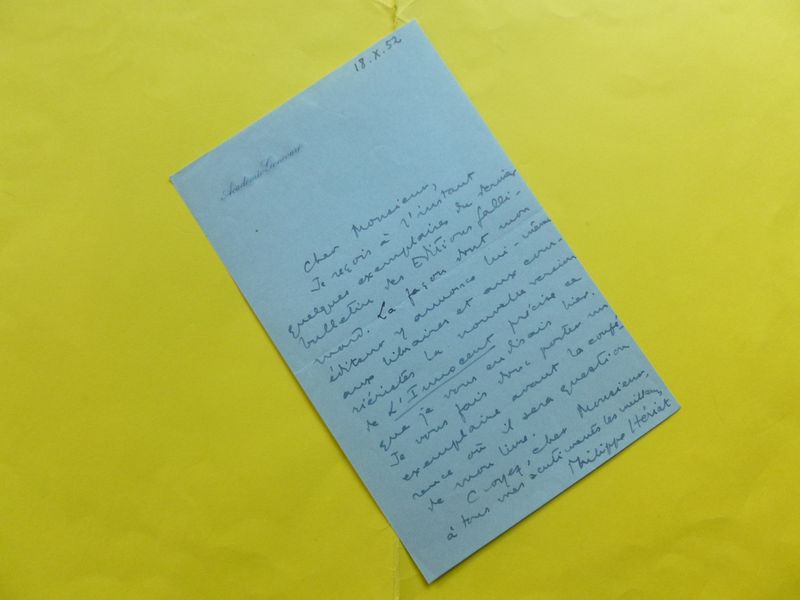 18.X.52
Académie Goncourt
Cher Monsieur,
Je reçois à l'instant
quelques exemplaires du dernier
bulletin des Editions Galli-
mard. La façon dont mon
éditeur y annonce lui-même
aux libraires et aux cour-
riéristes la nouvelle version
de L'Innocent précise ce
que je vous en disais hier.
Je vous fais donc porter un
exemplaire avant la confé-
rence où il sera question
de mon livre.
Croyez, cher Monsieur,
à tous mes sentiments les meilleurs,
Philippe Hériat